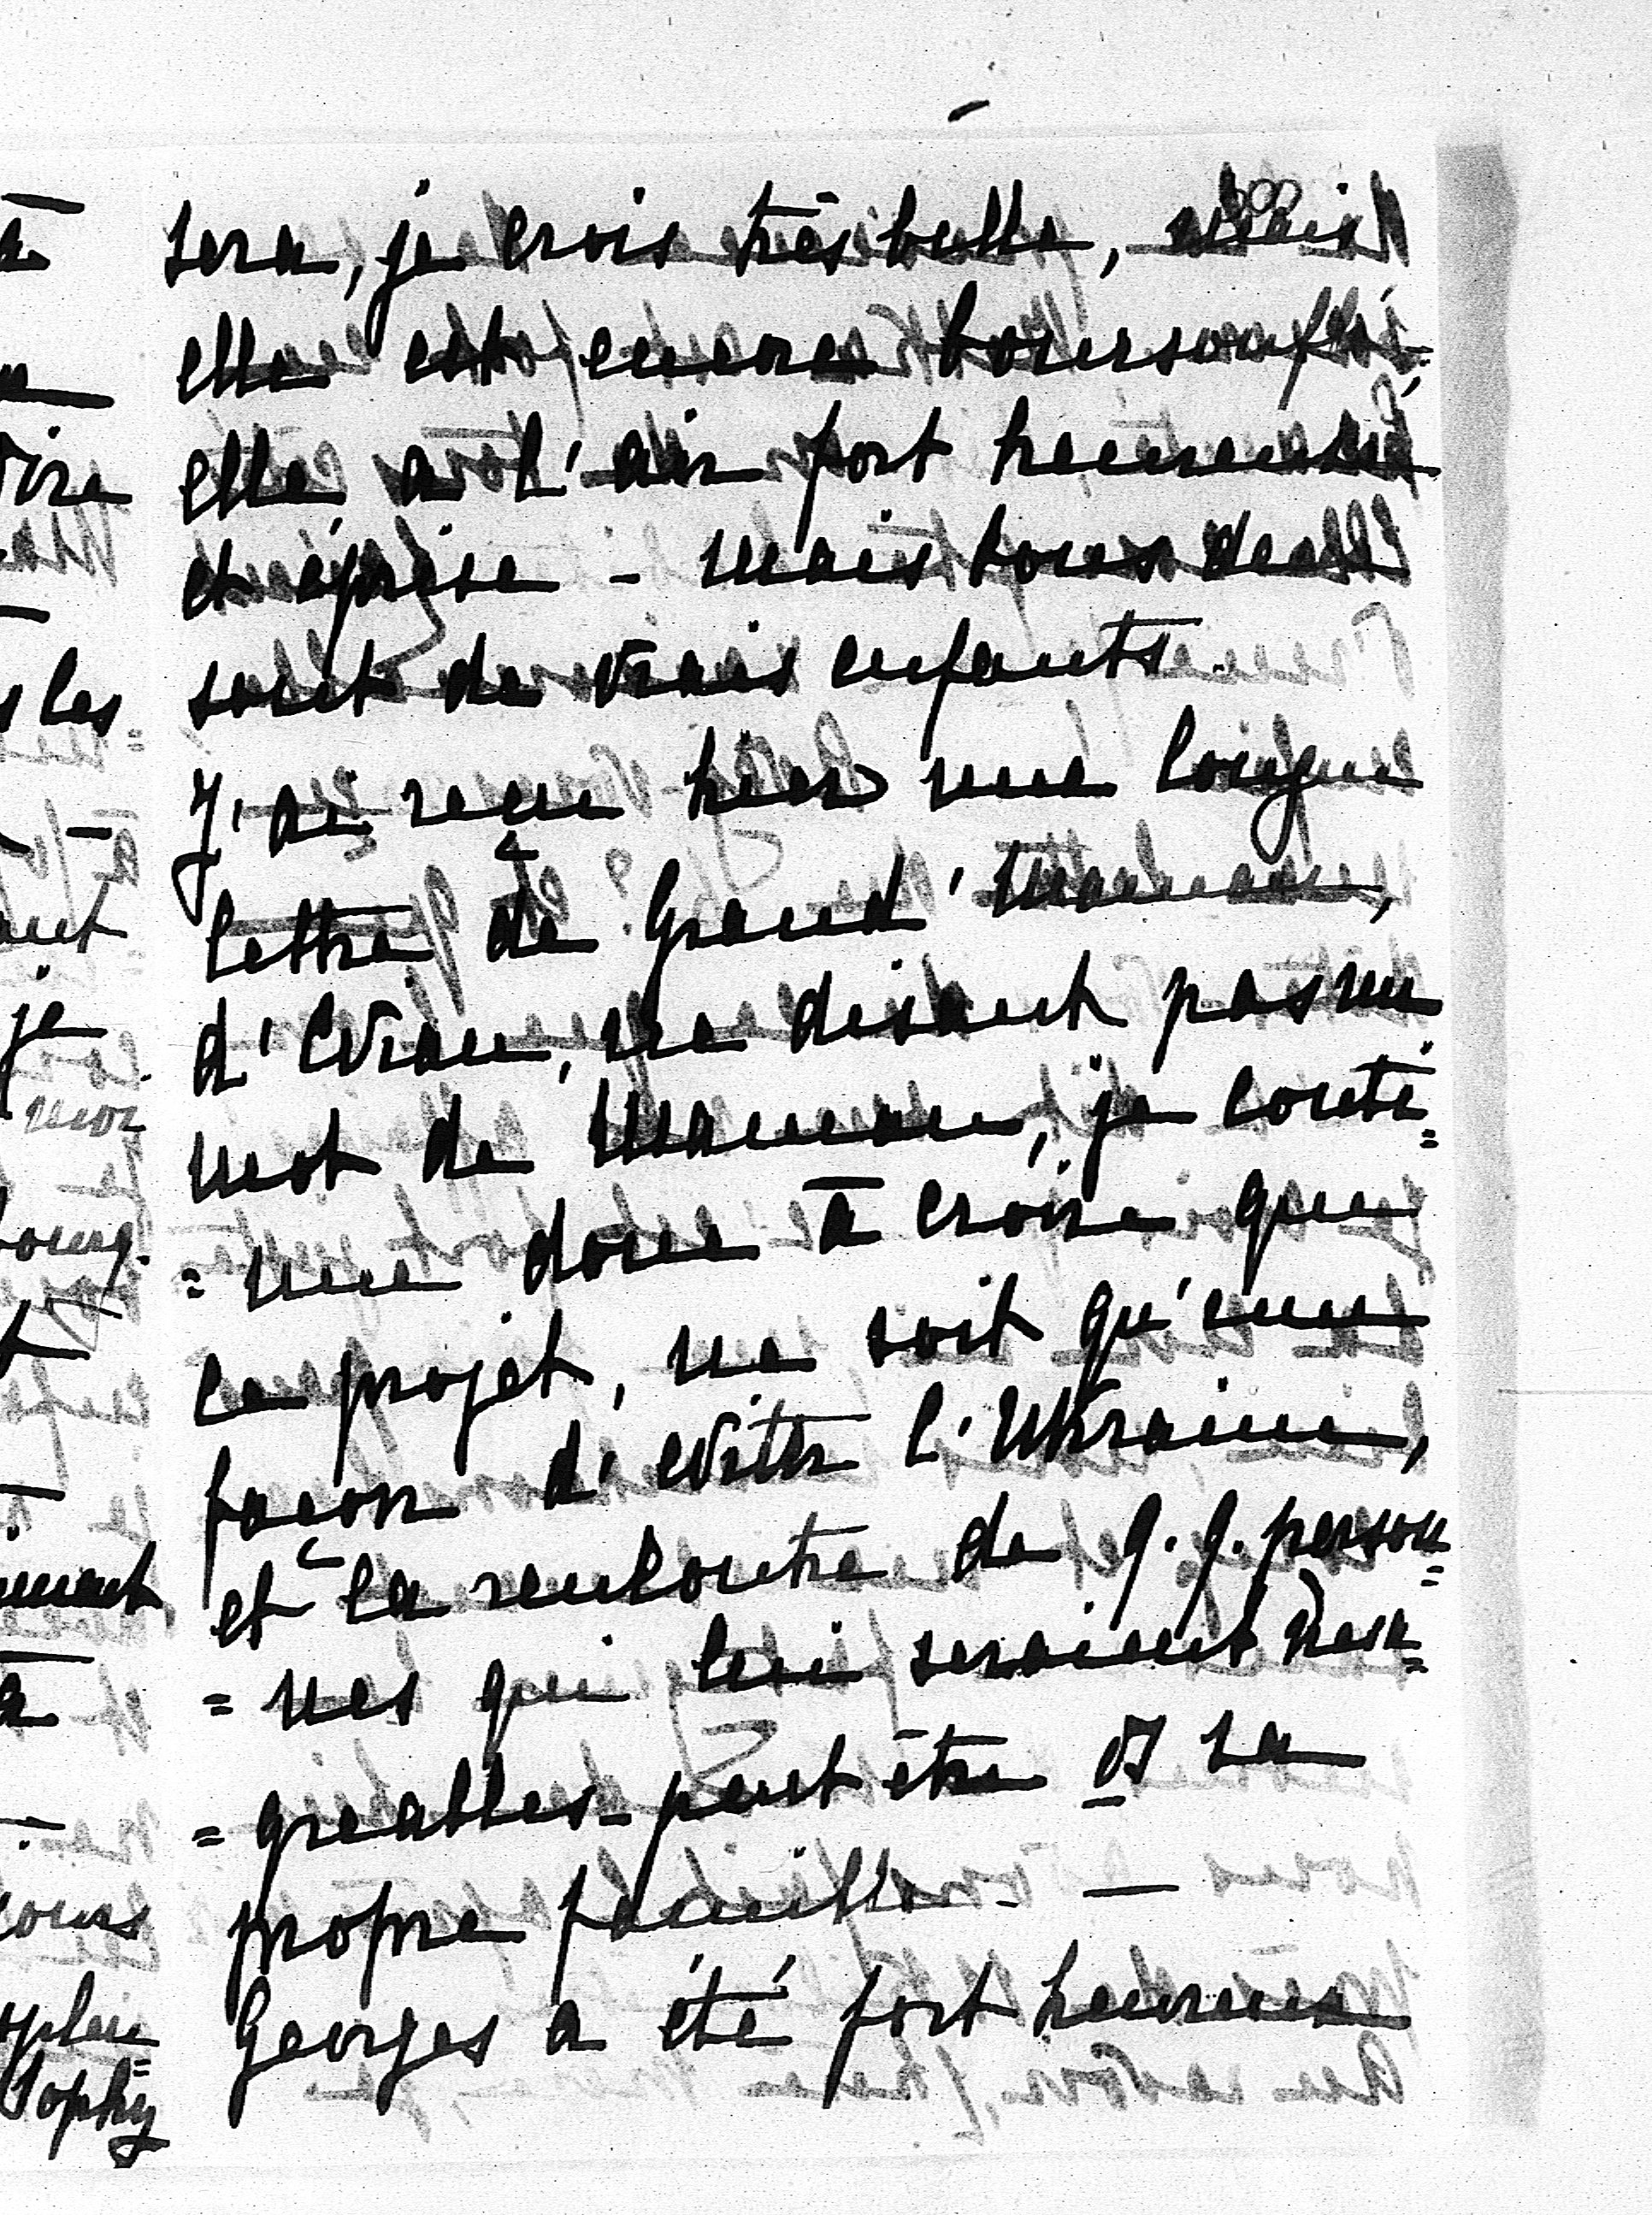 sera, je crois très belle, mais
elle est encore boursouflé;
elle a l'air fort heureuse
et éprise - mais tous deux
sont de vrais enfants.
J'ai reçu hier une longue
lettre de Grand'Maman,
d'Evian, ne disant pas un
mot de Maman, je conti=
=nue donc à croire que
ce projet, ne soit qu'une
façon d'éviter l'Ukraine,
et la rencontre de q.q. person=
=nes qui lui seraient desa=
=greables - peut être de sa
propre famille. —
Georges a été fort heureux